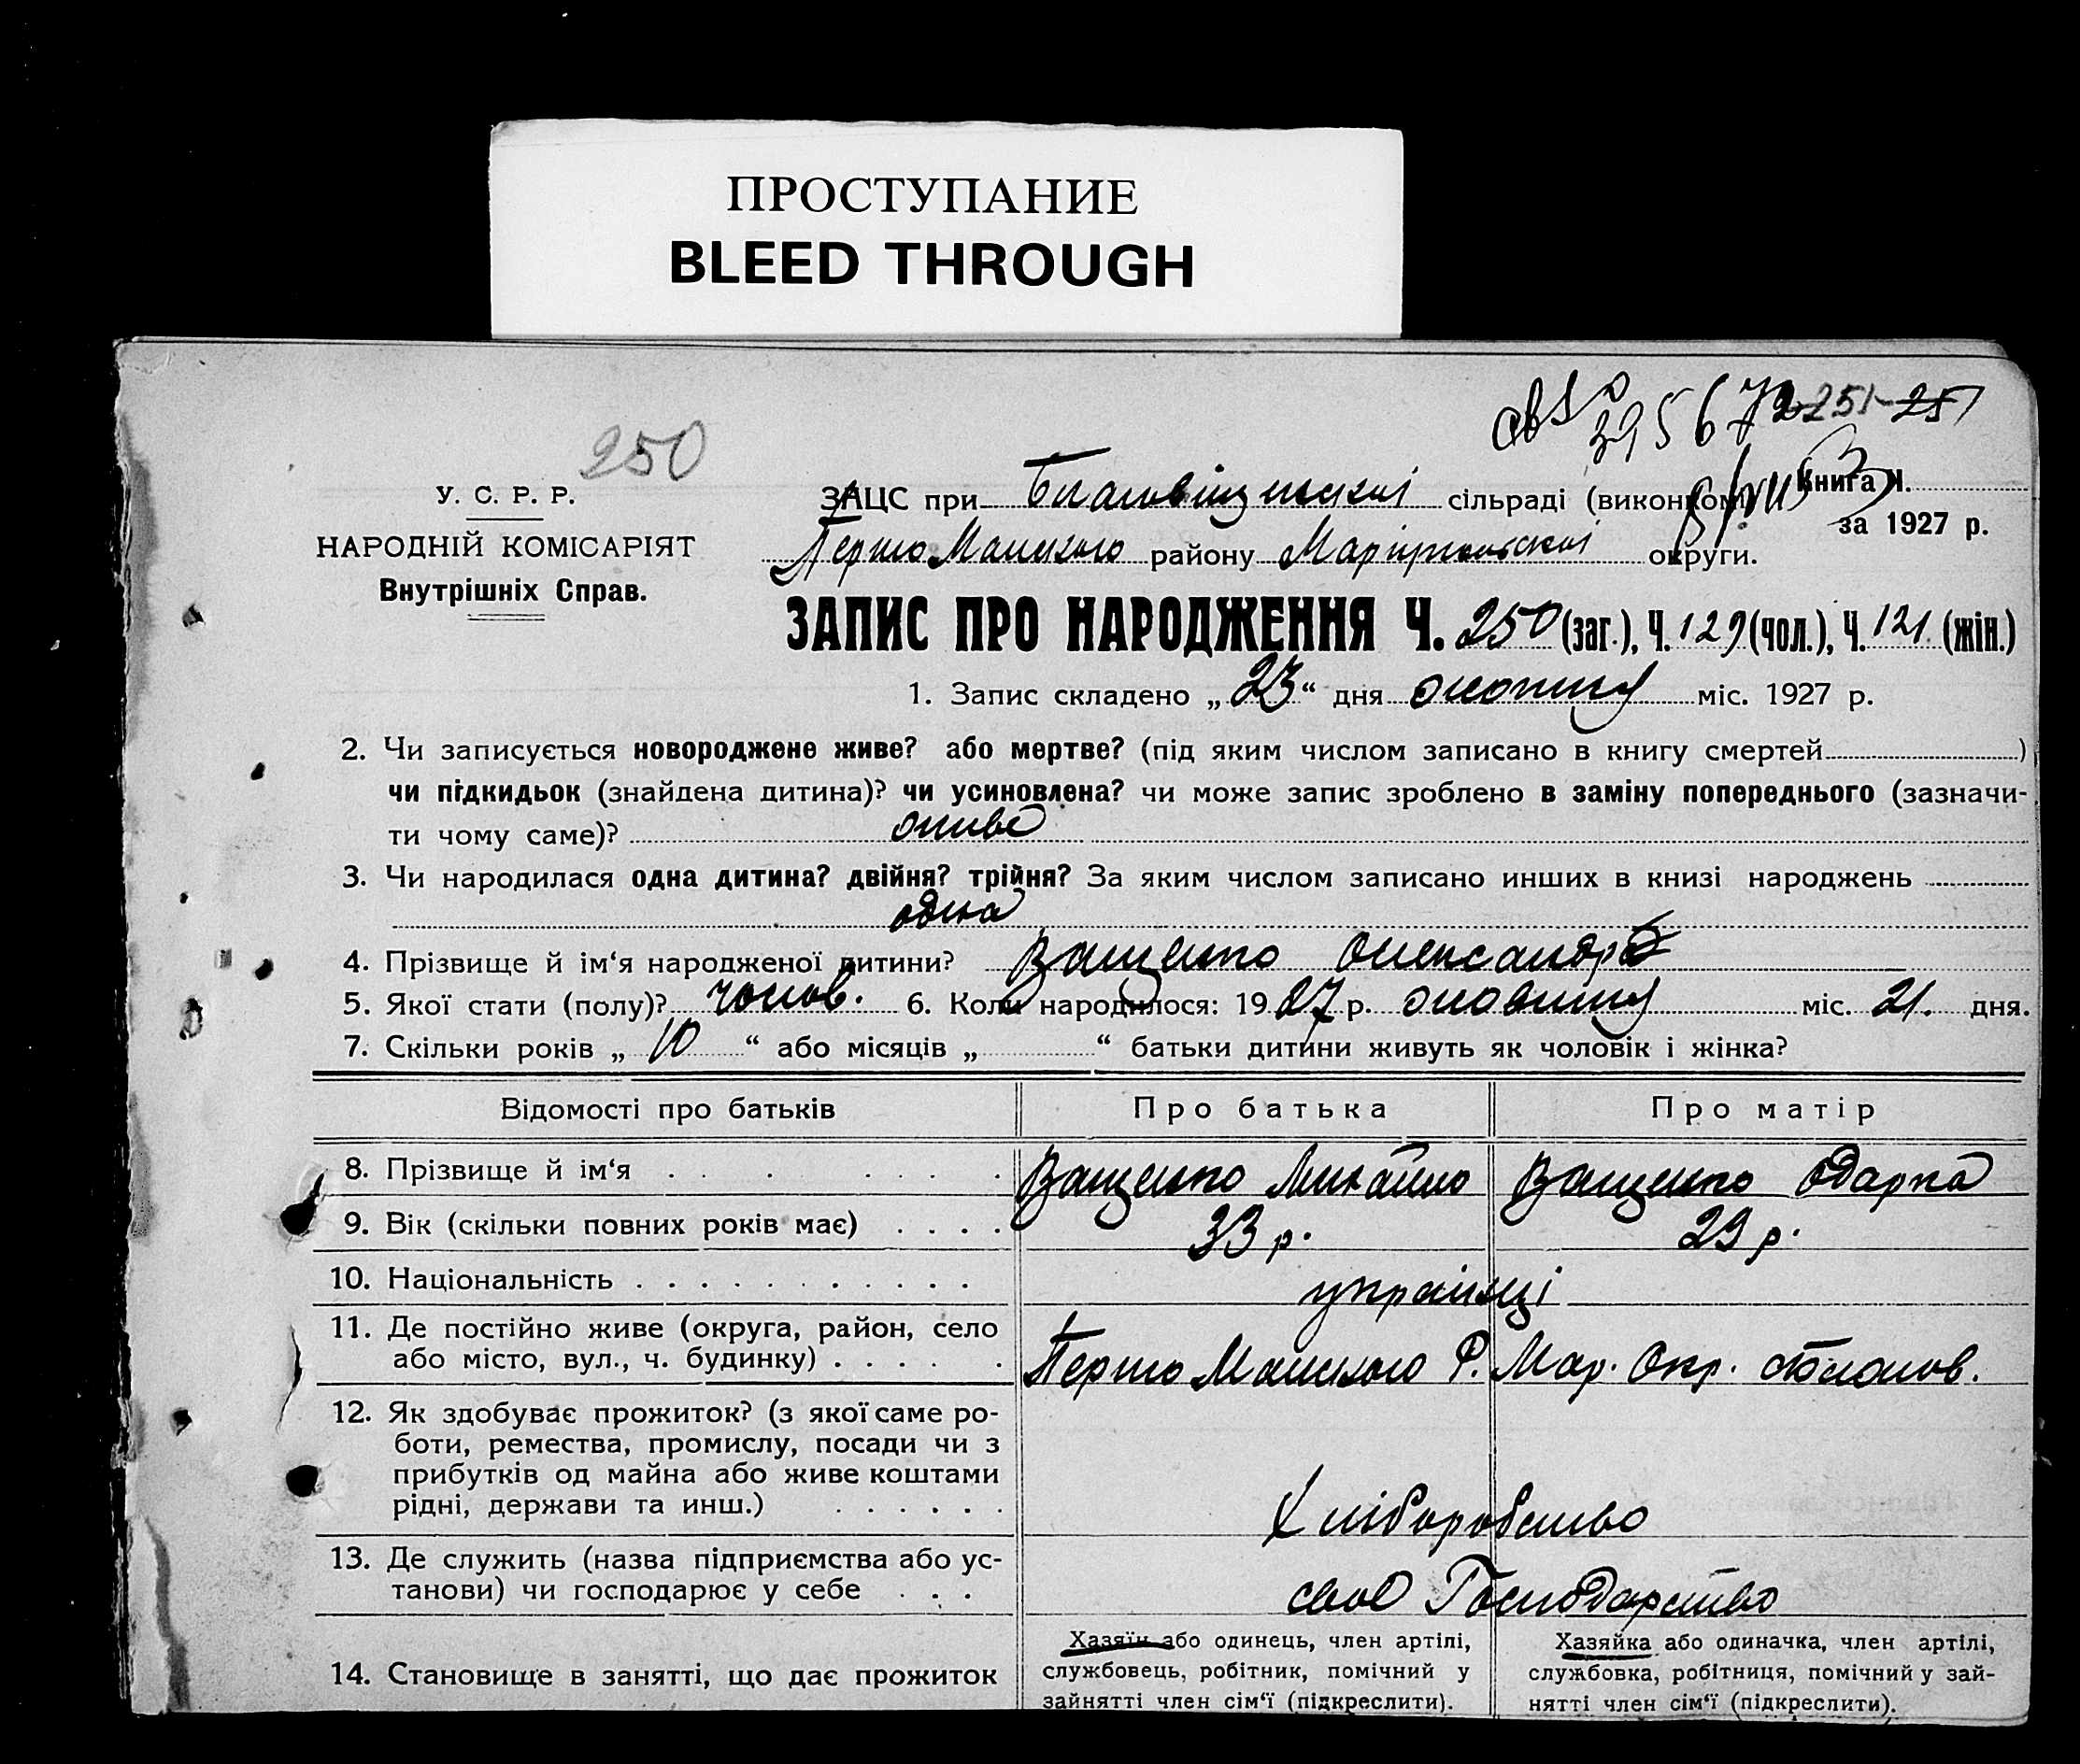 ПРОСТУПАНИЕ
BLEED THROUGH
250
251-251
У. С. Р. Р.
НАРОДНІЙ КОМІСАРІЯТ
Внутрішніх Справ.
ЗАЦС при Благовіщенскої сільраді (виконком) Книга Ч.
Першо Майского району Маріупольскої округи. за 1927 р.
ЗАПИС ПРО НАРОДЖЕННЯ Ч. 250 (заг.), Ч. 129 (чол.), Ч. 121 (жін.)
1. Запис складено „ 23 “ дня жовтня міс. 1927 р.
2. Чи записується новороджене живе? або мертве? (під яким числом записано в книгу смертей )
чи підкидьок (знайдена дитина)? чи усиновлена? чи може запис зроблено в заміну попереднього (зазначи-
ти чому саме)? живе
3. Чи народилася одна дитина? двійня? трійня? За яким числом записано инших в книзі народжень
одна
4. Прізвище й ім‘я народженої дитини? Ващенко Олександр
5. Якої стати (полу)? чолов. 6. Коли народилося: 1927 р. жовтня міс. 21. дня.
7. Скільки років „ 10 “ або місяців „ “ батьки дитини живуть як чоловік і жінка?
Відомості про батьків Про батька Про матір
8. Прізвище й ім‘я Ващенко Михайло Ващенко Одарка
9. Вік (скільки повних років має) 33 р. 29 р.
10. Національність українці
11. Де постійно живе (округа, район, село
або місто, вул., ч. будинку) Першо Майского Р. Мар. Окр.
12. Як здобуває прожиток? (з якої саме ро-
боти, ремества, промислу, посади чи з
прибутків од майна або живе коштами
рідні, держави та инш.) Хліборобство
13. Де служить (назва підприємства або ус-
танови) чи господарює у себе своє Господарство
14. Становище в занятті, що дає прожиток
Хазяїн або одинець, член артілі,
службовець, робітник, помічний у
зайнятті член сім‘ї (підкреслити).
Хазяйка або одиначка, член артілі,
службовка, робітниця, помічний у зай-
нятті член сім‘ї (підкреслити).